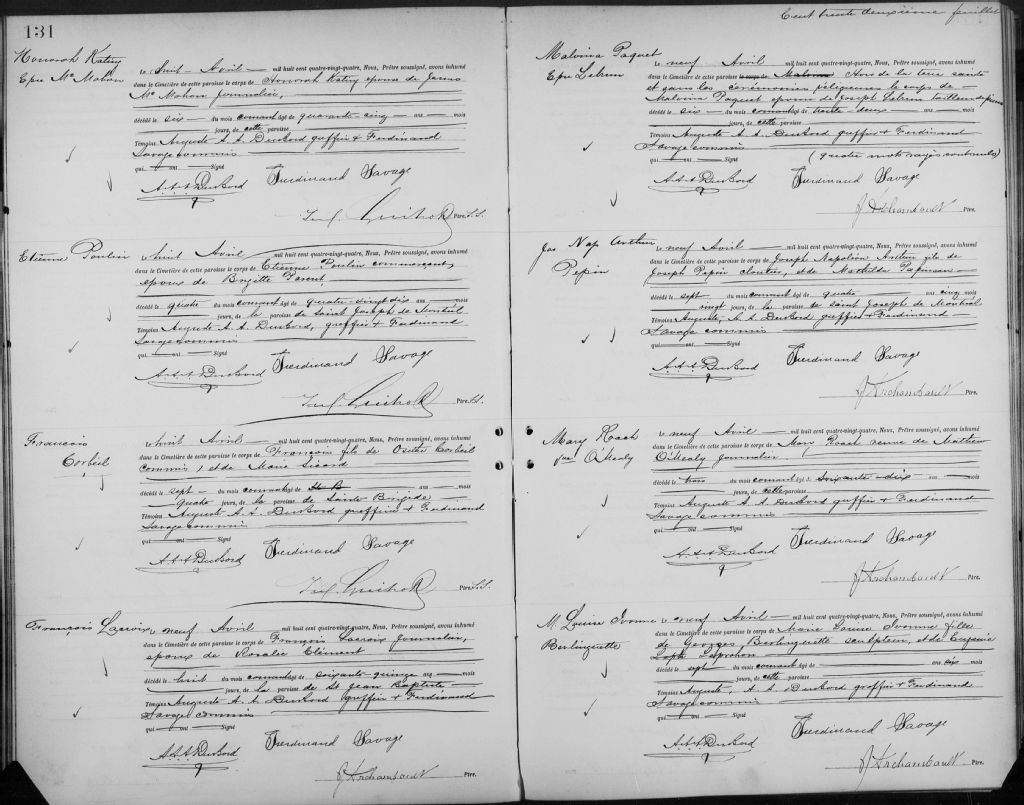 131
Honorah Katery
Epse Mc Mahon
Le huit Avril — mil huit cent quatre-vingt-quatre, Nous, Prêtre soussigné, avons inhumé
dans le Cimetière de cette paroisse le corps de Honorah Katery épouse de James
Mc Mahon Journalier,
décédé le six — du mois courant âgé de quarante-cinq — ans — mois
— jours, de cette paroisse
Témoins Auguste A. A. DuBord greffier & Ferdinand
Savage commis
qui — ont — Signé
A.A.A DuBord Ferdinand Savage
Ptre. S.S.
Etienne Poulin
Le huit Avril — mil huit cent quatre-vingt-quatre, Nous, Prêtre soussigné, avons inhumé
dans le Cimetière de cette paroisse le corps de Etienne Poulin commerçant,
époux de Brigitte Parent,
décédé le quatre du mois courant âgé de quatre-vingt dix ans — mois
— jours, de la paroisse de Saint Joseph de
Témoins Auguste A. A. DuBord, greffier & Ferdinand
Savage commis
qui — ont — Signé
A.A.A DuBord Ferdinand Savage
Ptre. S.S.
François
Corbeil
Le huit Avril — mil huit cent quatre-vingt-quatre, Nous, Prêtre soussigné, avons inhumé
dans le Cimetière de cette paroisse le corps de François fils de Corbeil
commis, et de Marie Sicard
décédé le sept — du mois courant âgé de — ans — mois
quatre jours, de la paroisse de Sainte Brigide —
Témoins Auguste A. A. DuBord greffier & Ferdinand
Savage commis
qui — ont — Signé
A.A.A DuBord Ferdinand Savage
Ptre. S.S.
François Lacroix
Le neuf Avril — mil huit cent quatre-vingt-quatre, Nous, Prêtre soussigné, avons inhumé
dans le Cimetière de cette paroisse le corps de François Lacroix Journalier,
époux de Rosalie Clément
décédé le huit du mois courant âgé de soixante-quinze ans — mois
— jours, de la paroisse de St Jean Baptiste
Témoins Auguste A. A. DuBord greffier & Ferdinand
Savage commis
qui — ont — Signé
A.A.A DuBord Ferdinand Savage
J Archambault Ptre.
Cent trente deuxième feuillet
Malvina Paquet
Epse Lebrun
Le neuf Avril — mil huit cent quatre-vingt-quatre, Nous, Prêtre soussigné, avons inhumé
dans le Cimetière de cette paroisse le corps de Malvina hors de la terre sainte
et sans les cérémonies religieuses le corps de —
Malvina Paquet épouse de Joseph Lebrun tailleur de pierre
décédé le six — du mois courant âgé de trente-deux — ans — mois
— jours, de cette paroisse
Témoins Auguste A. A. DuBord greffier & Ferdinand
Savage commis
qui — ont — Signé (quatre mots rayés sont nuls)
A.A.A DuBord Ferdinand Savage
J Archambault Ptre.
Jos Nap Arthur
Pepin
Le neuf Avril — mil huit cent quatre-vingt-quatre, Nous, Prêtre soussigné, avons inhumé
dans le Cimetière de cette paroisse le corps de Joseph Napoléon Arthur fils de
Joseph Pepin cloutier, et de Mathilde Papineau —
décédé le sept du mois courant âgé de quatre ans cinq mois
vingt jours, de la paroisse Saint Joseph de Montréal
Témoins Auguste A. A. DuBord greffier & Ferdinand —
Savage commis
qui — ont — Signé
A.A.A DuBord Ferdinand Savage
J Archambault Ptre.
Mary Roach
O'Mealy
Le neuf Avril — mil huit cent quatre-vingt-quatre, Nous, Prêtre soussigné, avons inhumé
dans le Cimetière de cette paroisse le corps de Mary Roach veuve de Mathew
O'Mealy Journalier
décédé le trois du mois courant âgé de soixante-dix ans — mois
— jours, de cette paroisse
Témoins Auguste A. A DuBord greffier & Ferdinand
Savage commis
qui — ont — Signé
A.A.A DuBord Ferdinand Savage
J Archambault Ptre.
M. Louise Ivonne
Berlinguette
Le neuf Avril — mil huit cent quatre-vingt-quatre, Nous, Prêtre soussigné, avons inhumé
dans le Cimetière de cette paroisse le corps de Marie Louise Ivonne fille
de Georges Berlinguette sculpteur, et de Eugénie
Laprohon
décédé le sept du mois courant âgé de — ans six mois
— jours, de cette paroisse
Témoins Auguste, A. A DuBord greffier & Ferdinand
Savage commis
qui — ont — Signé
A.A.A DuBord Ferdinand Savage
J Archambault Ptre.